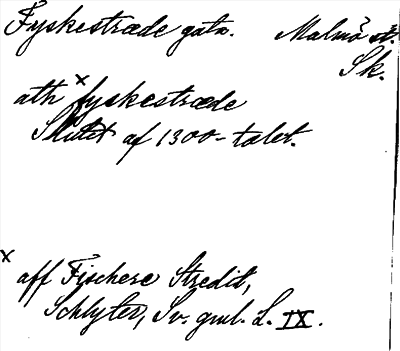 Fyskestræde gata. Malmö st.
Sk.
ath x fyskestræde
Slutet af 1300-talet.
x aff Fischere Stredit,
Schlyter, Sv. gml. L. IX.